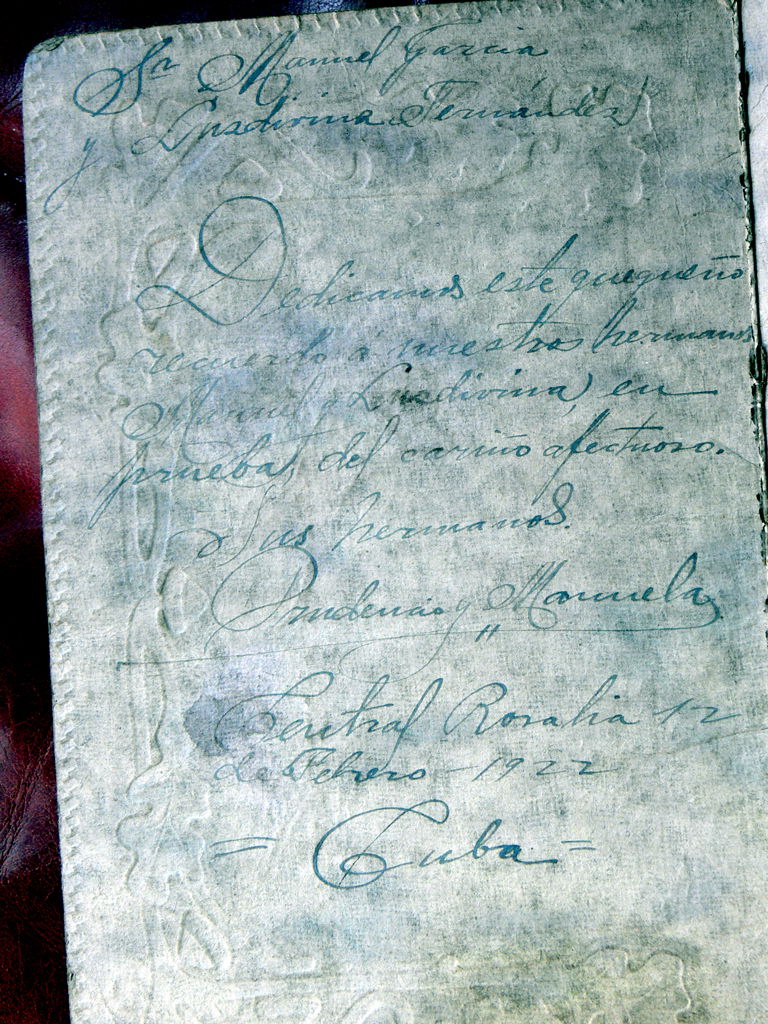 Sr Manuel Garcia
y Lusdivina Fernández
Dedicamos este quequeño
recuerdo á nuestros hermanos
Manuel y Lusdivina, en
prueba, del cariño afectuoso.
Sus hermanos.
Prudencio y Manuela
Central Rosalia 12
de Febrero - 1922
= Cuba =